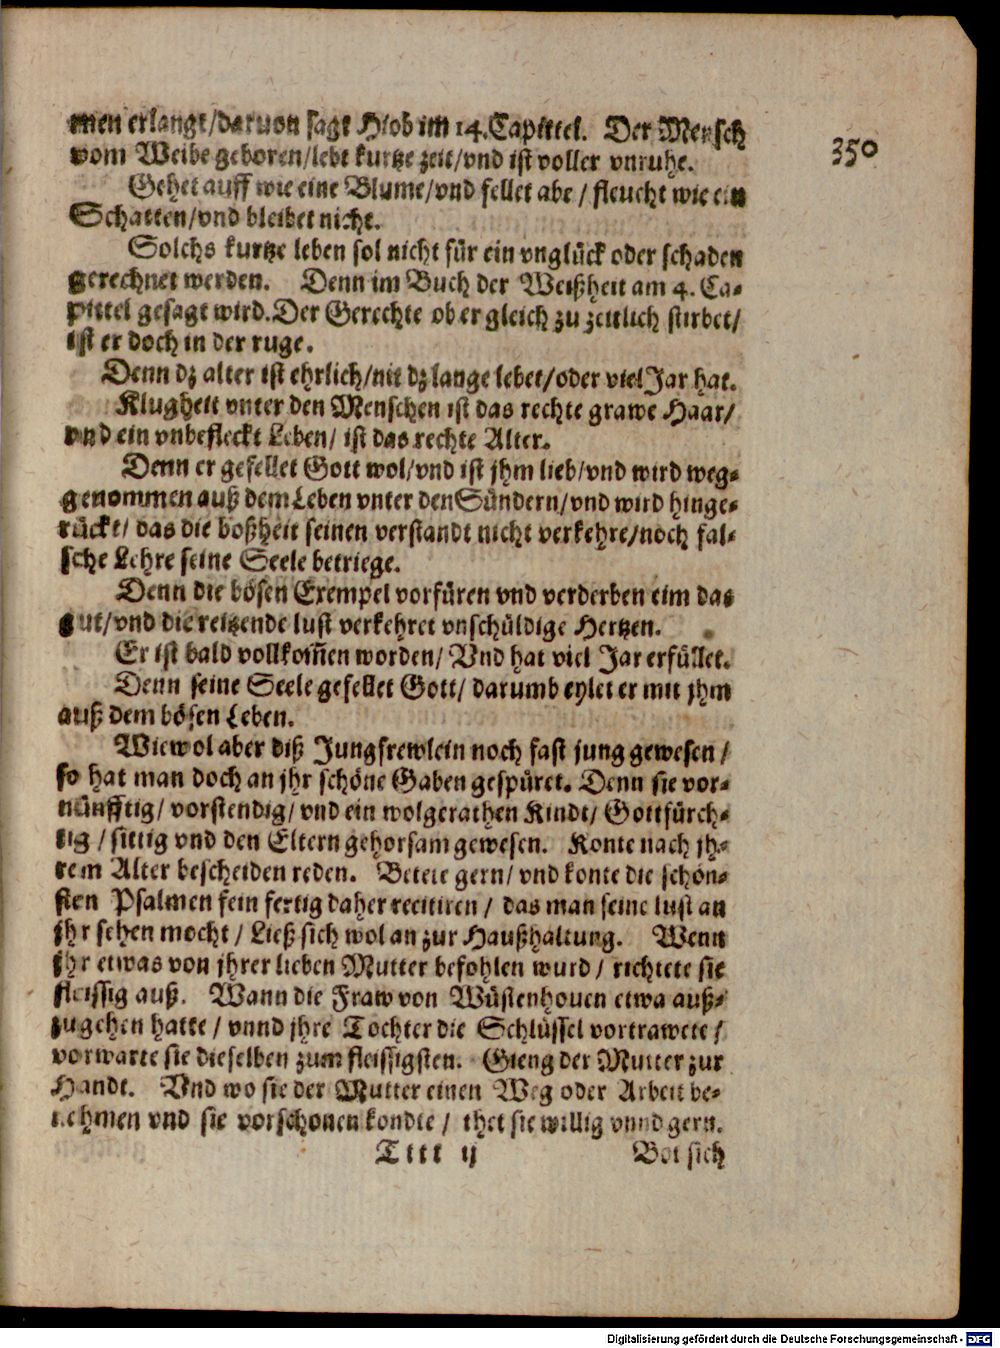 men erlangt/daruon sagt Hiob im 14. Capittel. Der Mensch
vom Weibe geboren/lebt kurtze zeit/vnd ist voller vnruhe.
350
Gehet auff wie eine Blume/vnd fellet abe / fleucht wie ein
Schatten/vnd bleibet nicht.
Solchs kurtze leben sol nicht für ein vnglück oder schaden
gerechnet werden. Denn im Buch der Weißheit am 4. Ca-
pittel gesagt wird. Der Gerechte ob er gleich zu zeitlich stirbet/
ist er doch in der ruge.
Denn dz alter ist ehrlich/nit dz lange lebet/oder viel Jar hat.
Klugheit vnter den Menschen ist das rechte grawe Haar/
vnd ein vnbefleckt Leben/ ist das rechte Alter.
Denn er gefellet Gott wol/vnd ist jhm lieb/vnd wird weg-
genommen auß dem Leben vnter den Sündern/vnd wird hinge-
rückt/ das die boßheit seinen verstandt nicht verkehre/noch fal-
sche Lehre seine Seele betriege.
Denn die bösen Exempel vorfüren vnd verderben eim das
gut/vnd die reitzende lust verkehret vnschüldige Hertzen.
Er ist bald vollkom̃en worden/ Vnd hat viel Jar erfüllet.
Denn seine Seele gefellet Gott/ darumb eylet er mit jhm
auß dem bösen Leben.
Wiewol aber diß Jungfrewlein noch fast jung gewesen /
so hat man doch an jhr schöne Gaben gespüret. Denn sie vor-
nünfftig/ vorstendig/ vnd ein wolgerathen Kindt/ Gottfürch-
tig / sittig vnd den Eltern gehorsam gewesen. Konte nach jh-
rem Alter bescheiden reden. Betete gern/ vnd konte die schön-
sten Psalmen fein fertig daher recitiren / das man seine lust an
jhr sehen mocht / Ließ sich wol an zur Haußhaltung. Wenn
jhr etwas von jhrer lieben Mutter befohlen wurd / richtete sie
fleissig auß. Wann die Fraw von Wüstenhouen etwa auß-
zugehen hatte / vnnd jhre Tochter die Schlüssel vortrawete /
vorwarte sie dieselben zum fleissigsten. Gieng der Mutter zur
Handt. Vnd wo sie der Mutter einen Weg oder Arbeit be-
nehmen vnd sie vorschonen kondte / thet sie willig vnnd gern.
Tttt ij Bot sich
Digitalisierung gefördert durch die Deutsche Forschungsgemeinschaft - DFG